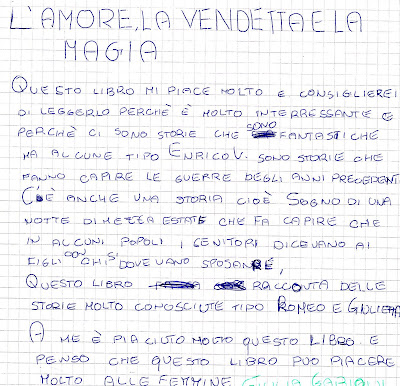 L'AMORE, LA VENDETTA E LA
MAGIA
QUESTO LIBRO MI PIACE MOLTO E CONSIGLIEREI
DI LEGGERLO PERCHÈ È MOLTO INTERRESSANTE E
PERCHÈ CI SONO STORIE CHE SONO FANTASTICHE
MA ALCUNE TIPO ENRICO V. SONO STORIE CHE
FANNO CAPIRE LE GUERRE DEGLI ANNI PRECEDENTI
C'È ANCHE UNA STORIA CIOÈ SOGNO DI UNA
NOTTE DI MEZZA ESTATE CHE FA CAPIRE CHE
IN ALCUNI POPOLI I GENITORI DICEVANO AI
FIGLI CON CHI SI DOVEVANO SPOSARE,
QUESTO LIBRO RACCONTA DELLE
STORIE MOLTO CONOSCIUTE TIPO ROMEO E GIULIETTA
A ME È PIACIUTO MOLTO QUESTO LIBRO E
PENSO CHE QUESTO LIBRO PUÒ PIACERE
MOLTO ALLE FEMMINE GIULIA